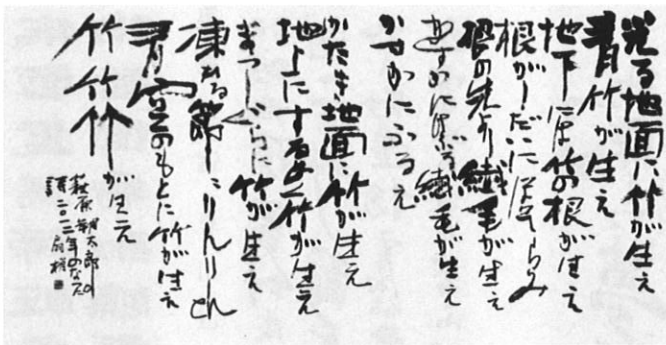 光る地面に竹が生え
青竹が生え
地下には竹の根が生え
根がしだいにほそらみ
根の先より繊毛が生え
かすかにけぶる繊毛が生え
かすかにふるえ
かたき地面に竹が生え
地上にするどく竹が生え
まつしぐらに竹が生え
凍れる節々りんりんと
青空のもとに竹が生え
竹竹竹が生え
萩原朔太郎の
詩二〇一二年のなつ